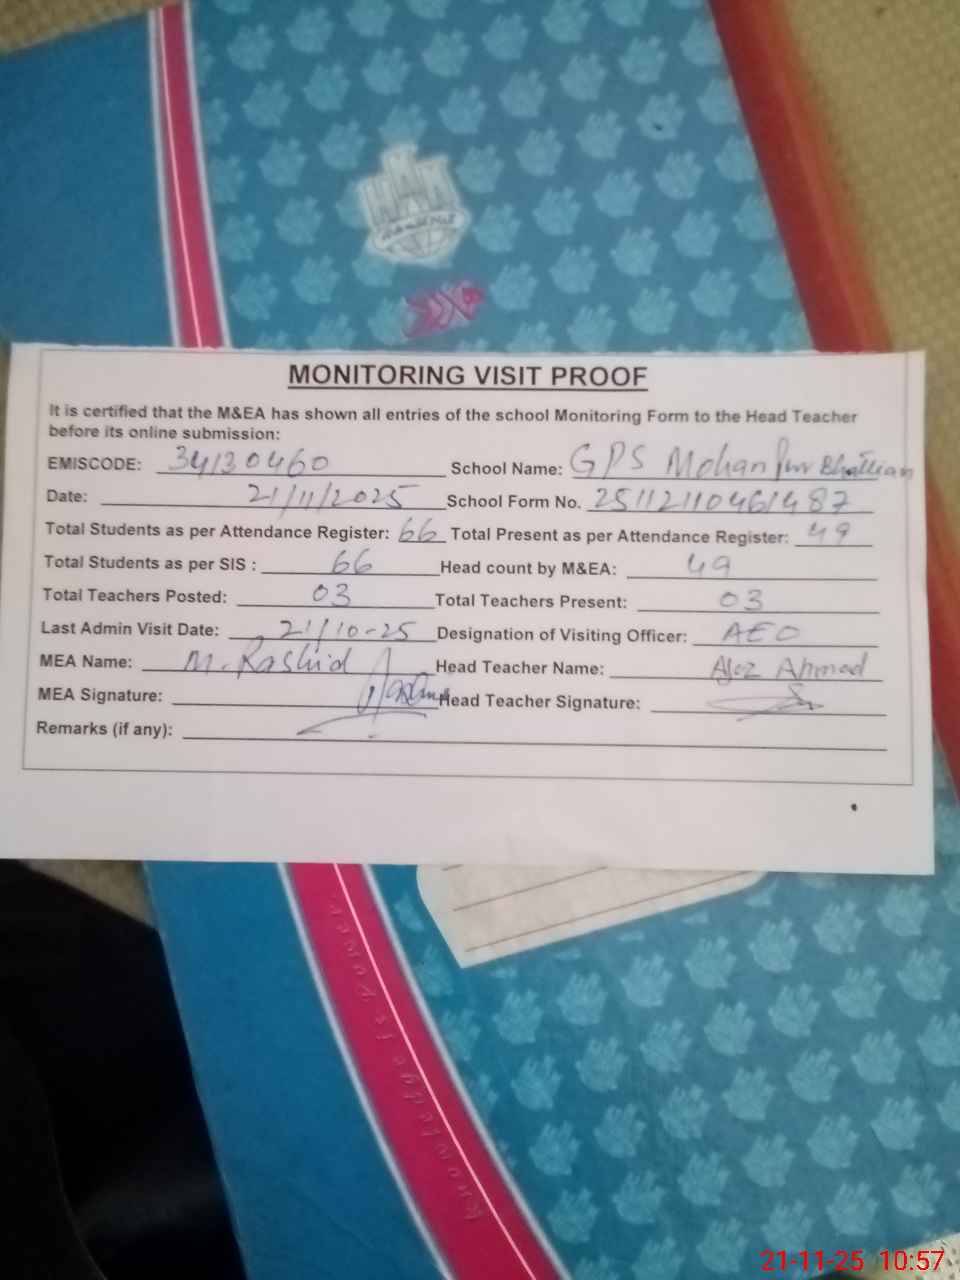 MONITORING VISIT PROOF
It is certified that the M&EA has shown all entries of the school Monitoring Form to the Head Teacher
before its online submission:
EMISCODE: 34130460 School Name: GPS Mohan Pur Bhattian
Date: 21/11/2025 School Form No. 25112110461487
Total Students as per Attendance Register: 66 Total Present as per Attendance Register: 49
Total Students as per SIS : 66 Head count by M&EA: 49
Total Teachers Posted: 03 Total Teachers Present: 03
Last Admin Visit Date: 21/10-25 Designation of Visiting Officer: AEO
MEA Name: M. Rashid Head Teacher Name: Ajaz Ahmad
MEA Signature: Head Teacher Signature:
Remarks (if any):
Knowledge is Power
21-11-25 10:57